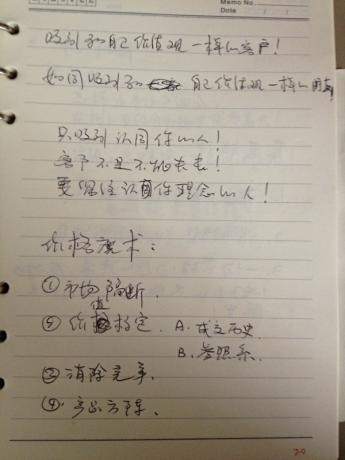 Memo No
Date
吸引和自己价值观一样的客户!
如同吸引和自己价值观一样的朋友
只吸引认同你的人!
客户不是不能失去!
要留住认同你理念的人!
价格魔术:
① 市场隔断.
② 价值 稳定. A. 成立历史.
B. 参照系.
③ 消除竞争.
④
20